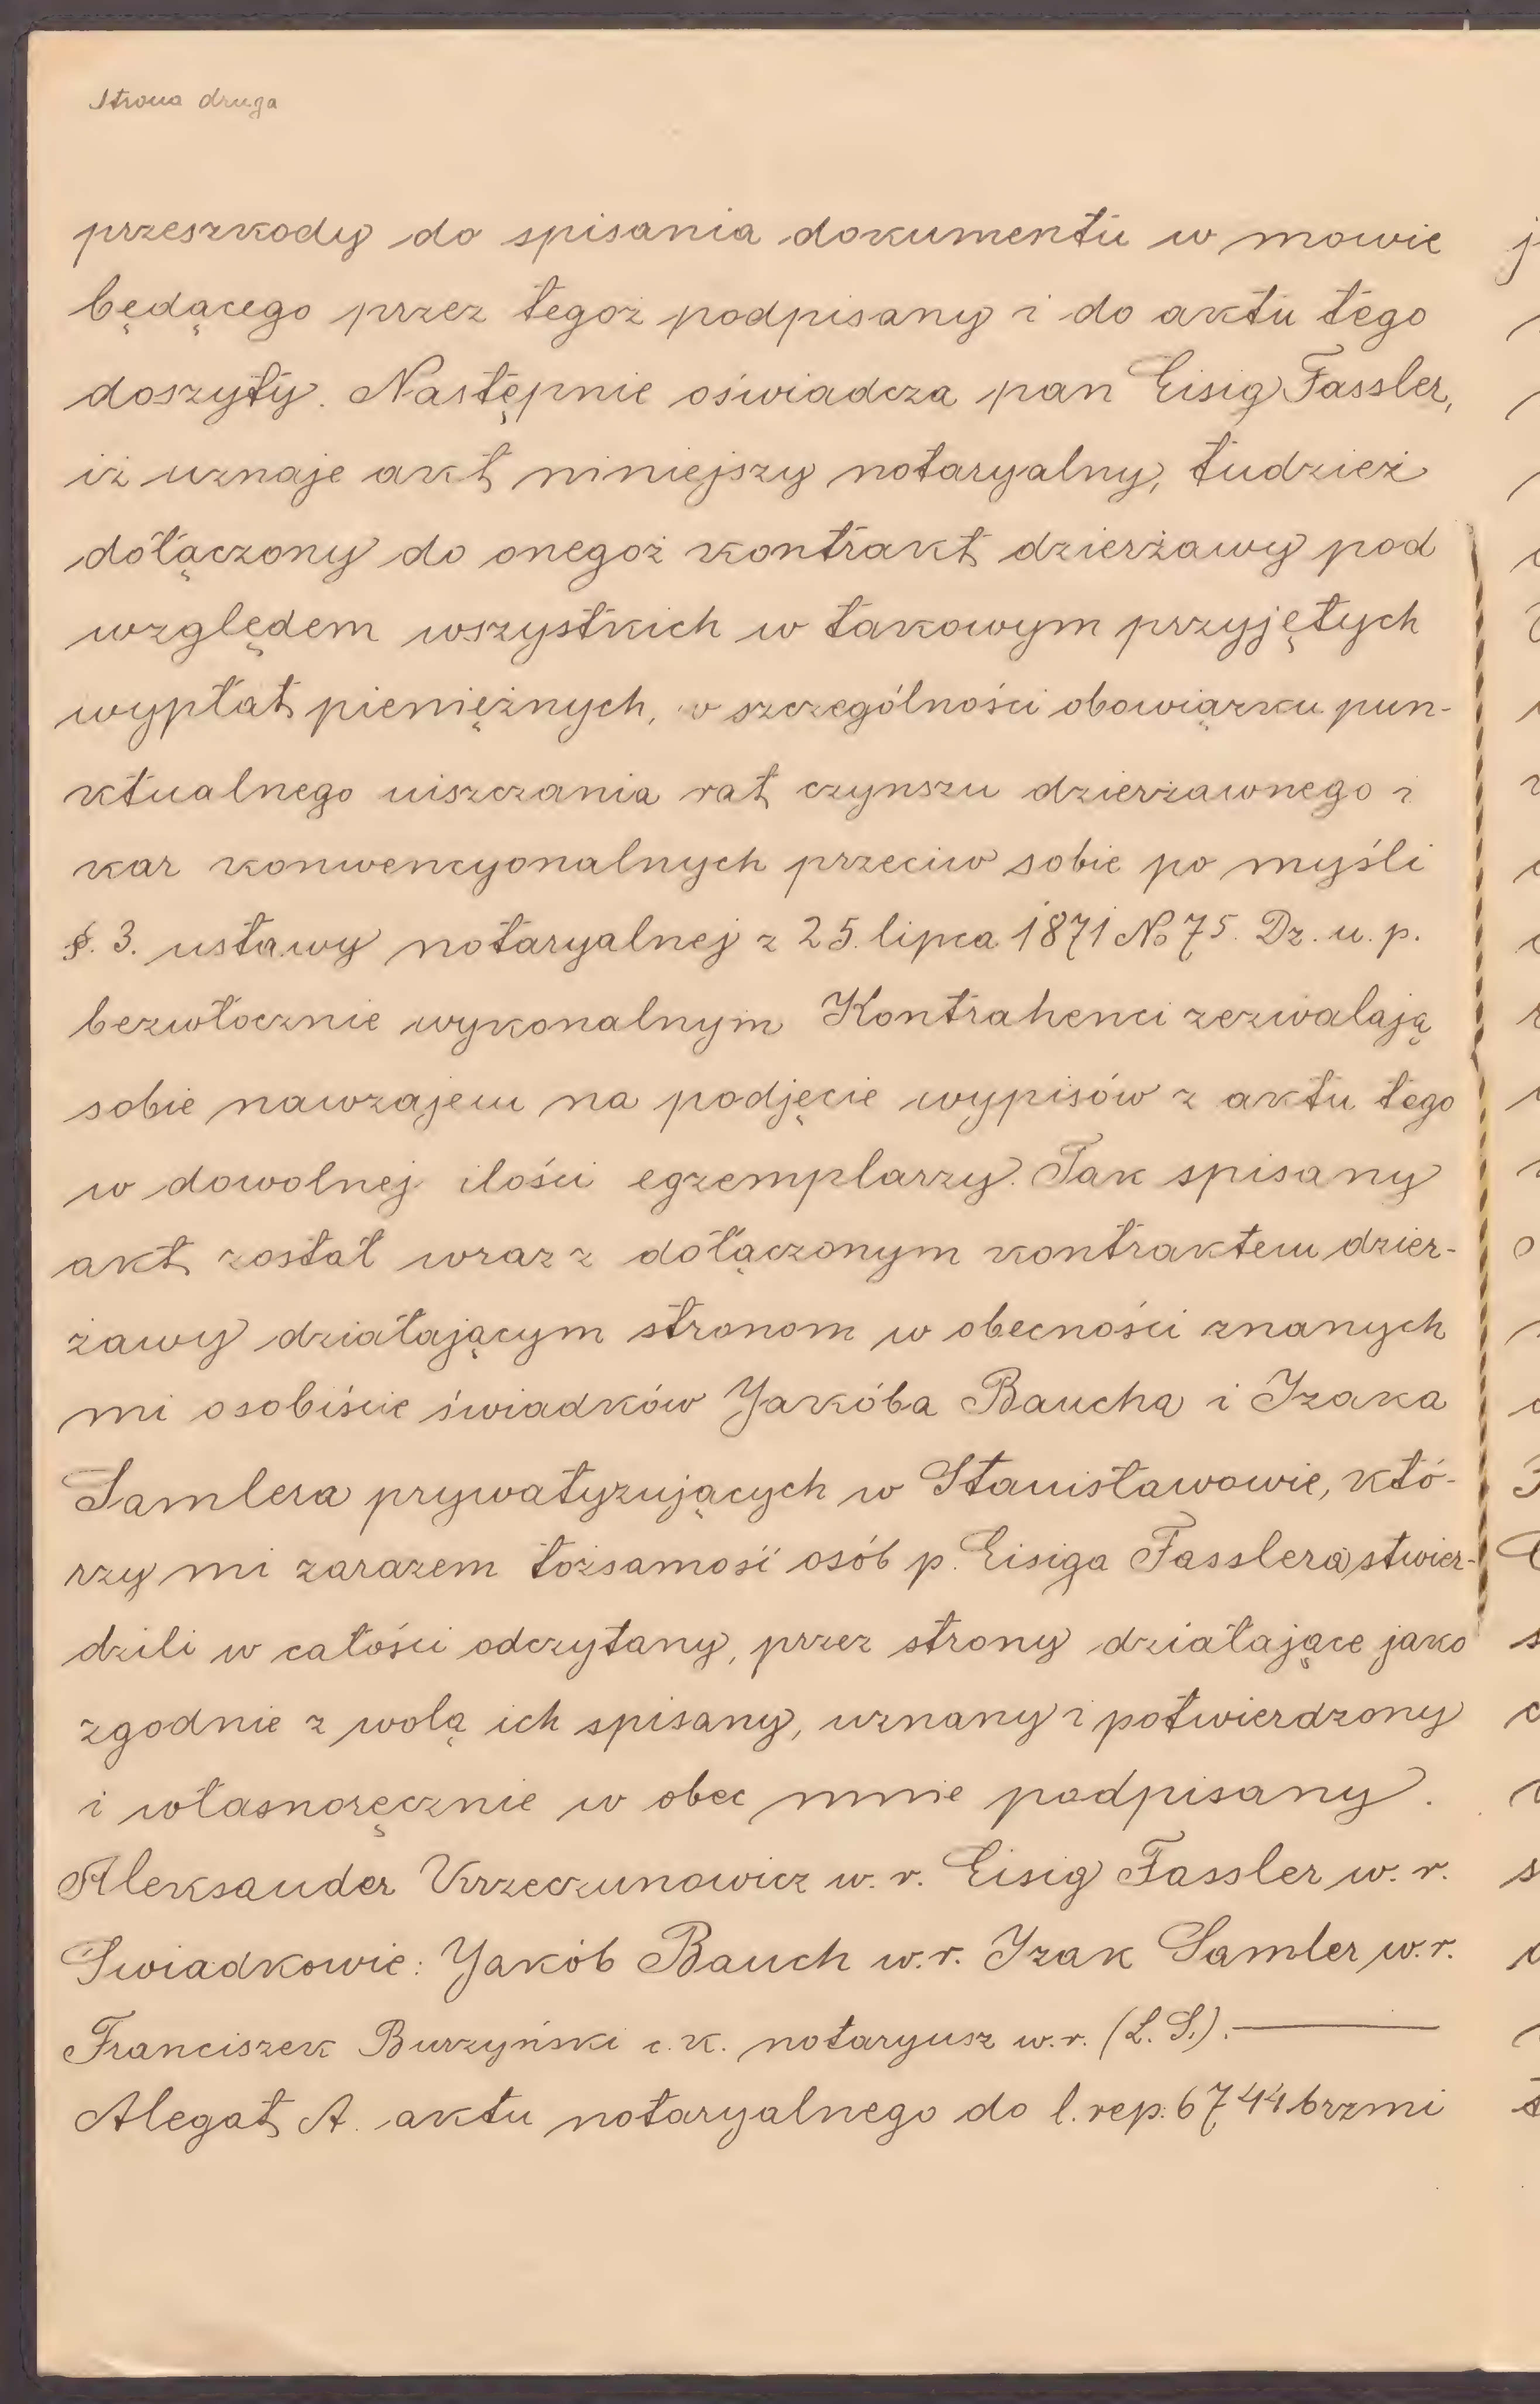 Strona druga
przeszkody do spisania dokumentu w mowie
będącego przez tegoż podpisany i do aktu tego
doszyty. Następnie oświadcza pan Eisig Fassler,
iż uznaje akt niniejszy notaryalny, tudzież
dołączony do onegoż kontrakt dzierżawy pod
względem wszystkich w takowym przyjętych
wypłat pieniężnych, w szczególności obowiązku pun-
ktualnego uiszczania rat czynszu dzierżawnego i
kar konwencyonalnych przeciw sobie po myśli
§. 3. ustawy notaryalnej z 25. lipca 1871 No 75. Dz. u. p.
bezwłocznie wykonalnym Kontrahenci zezwalają
sobie nawzajem na podjęcie wypisów z aktu tego
w dowolnej ilości egzemplarzy. Tak spisany
akt został wraz z dołączonym kontraktem dzier-
żawy działającym stronom w obecności znanych
mi osobiście świadków Jakóba Baucha i Izaka
Samlera prywatyzujących w Stanisławowie, któ-
rzy mi zarazem tożsamość osób p. Eisiga Fasslera stwier-
dzili w całości odczytany, przez strony działające jako
zgodnie z wolą ich spisany, uznany i potwierdzony
i własnoręcznie w obec mnie podpisany.
Aleksander Krzeczunowicz w. r. Eisig Fassler w. r.
Świadkowie: Jakób Bauch w. r. Izak Samler w. r.
Franciszek Burzyński c. k. notaryusz w. r. (L. S.).
Alegat A. aktu notaryalnego do l. rep. 6744 brzmi